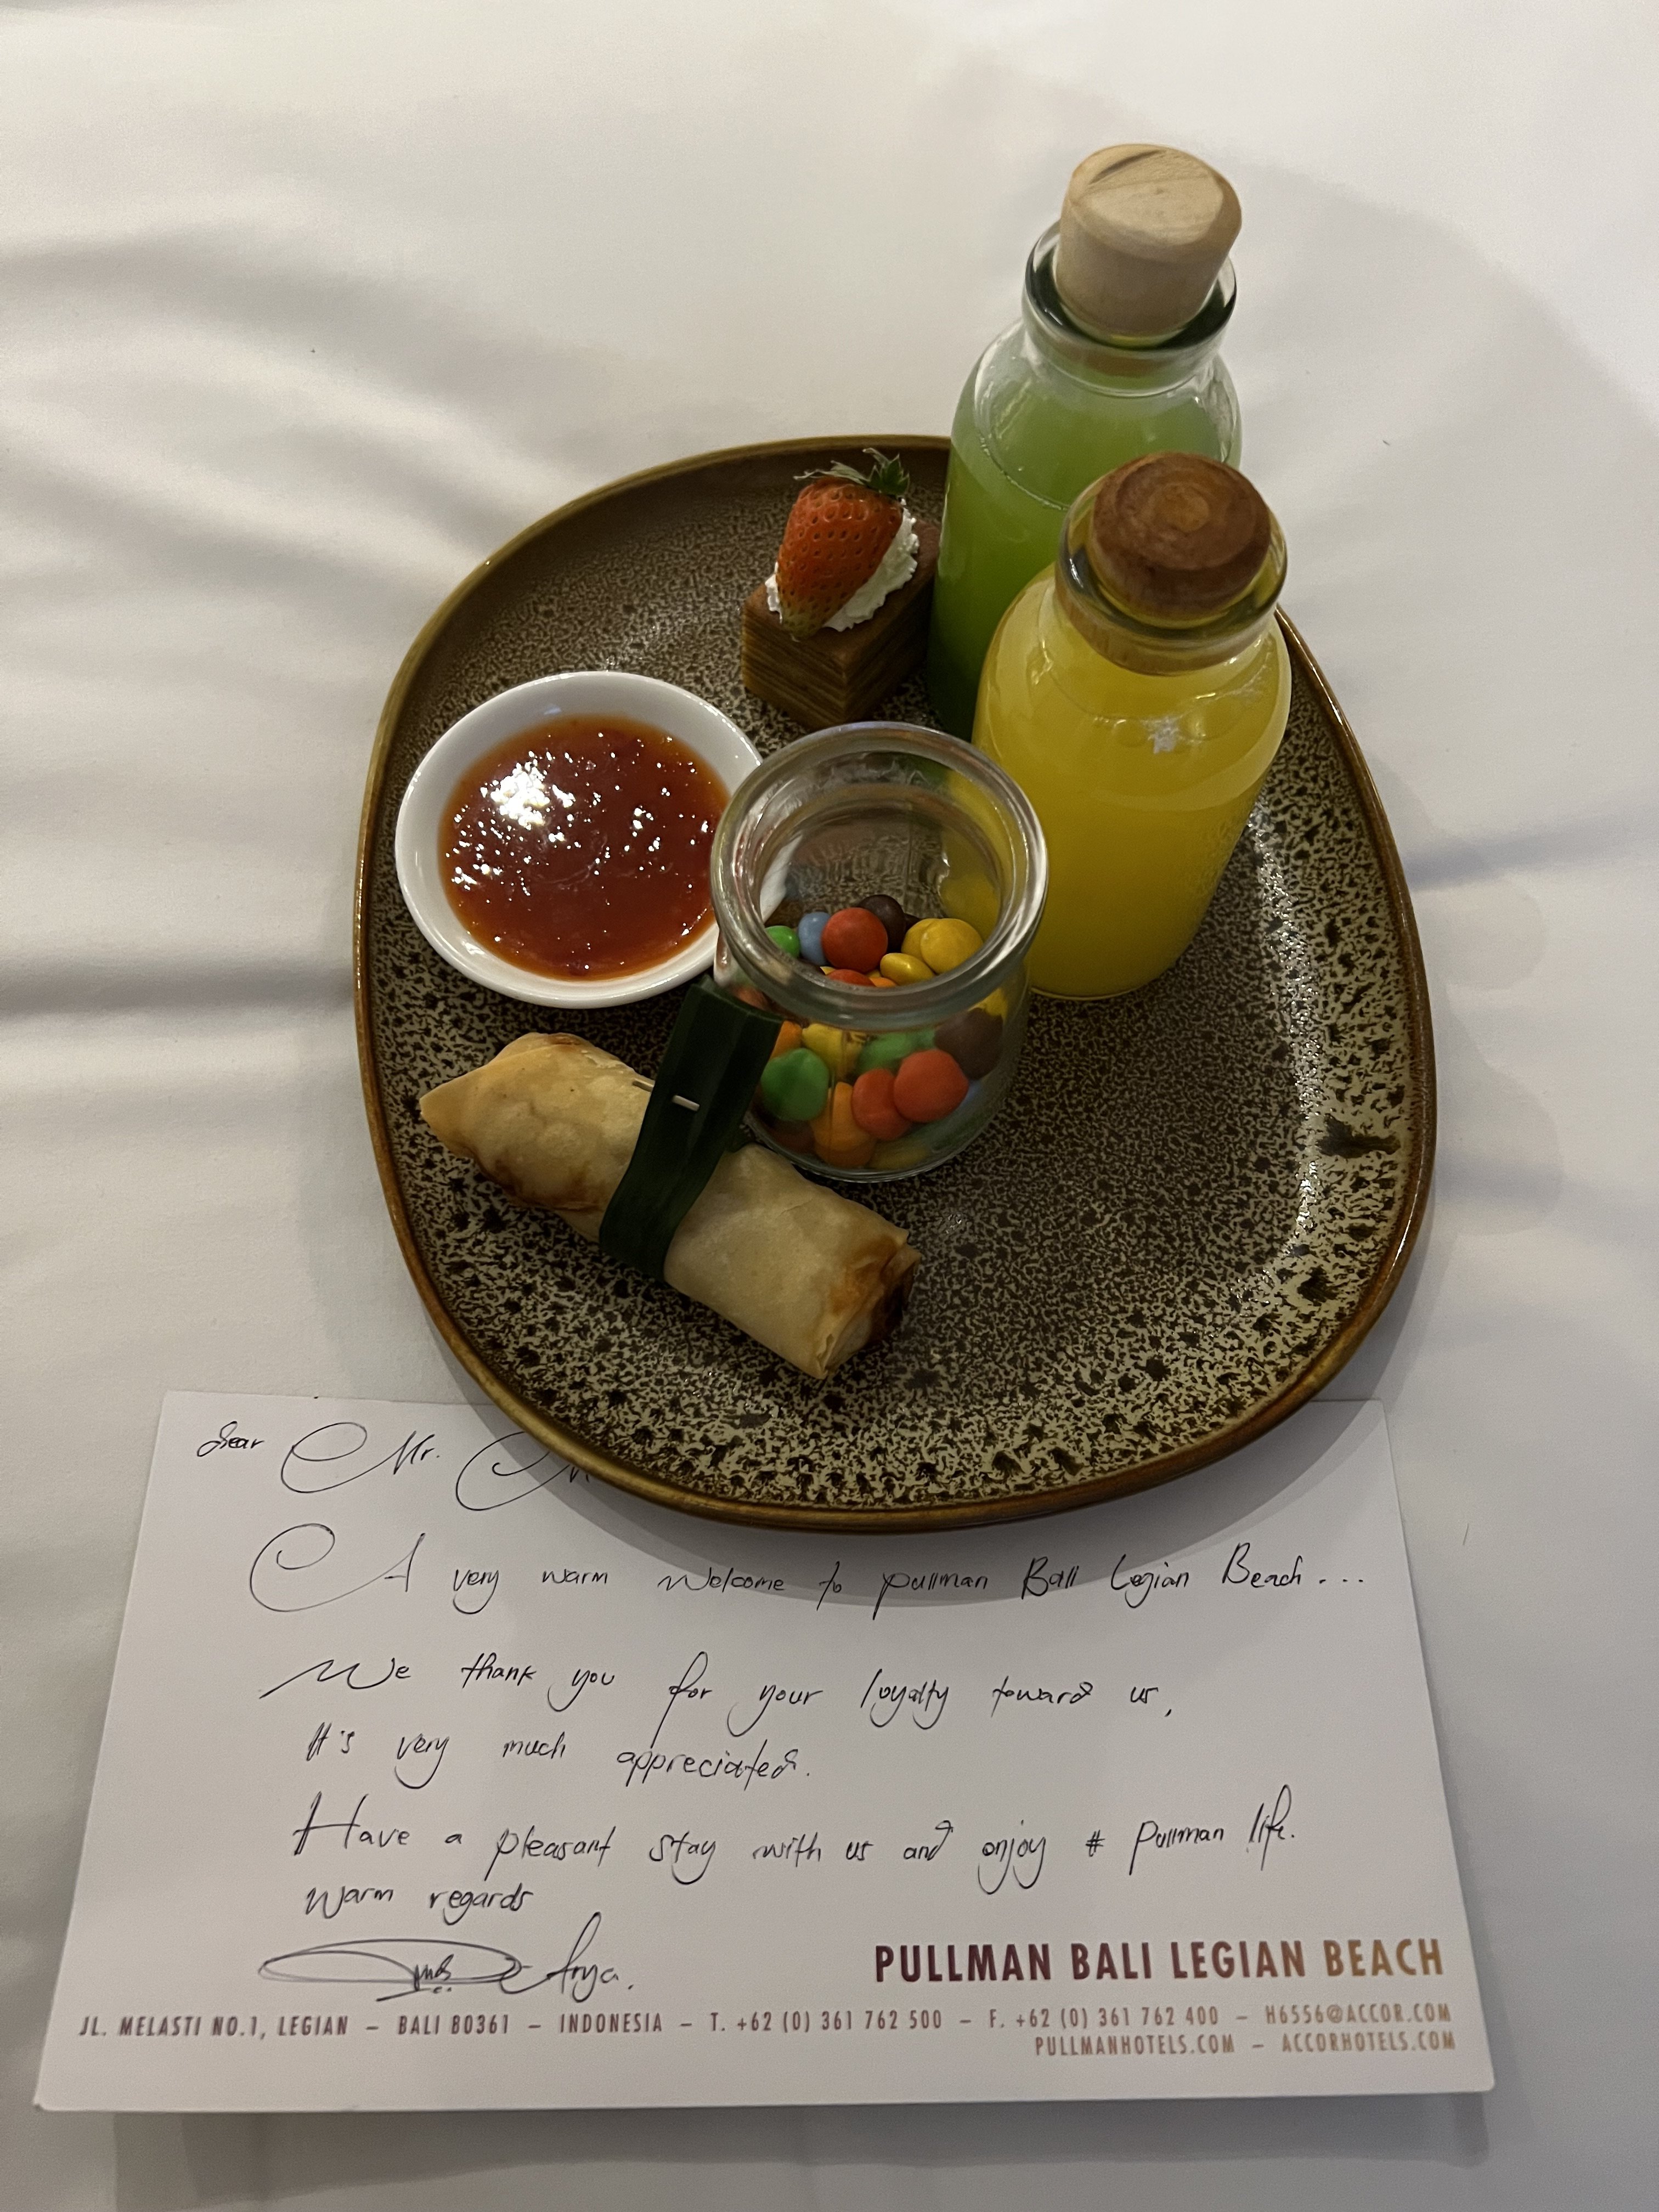 dear Mr.
A very warm welcome to pullman Bali Legian Beach...
We thank you for your loyalty toward us,
It's very much appreciated.
Have a pleasant stay with us and enjoy # Pullman life.
Warm regards
Arya.
PULLMAN BALI LEGIAN BEACH
JL. MELASTI NO.1, LEGIAN – BALI 80361 – INDONESIA – T. +62 (0) 361 762 500 – F. +62 (0) 361 762 400 – H6556@ACCOR.COM
PULLMANHOTELS.COM – ACCORHOTELS.COM